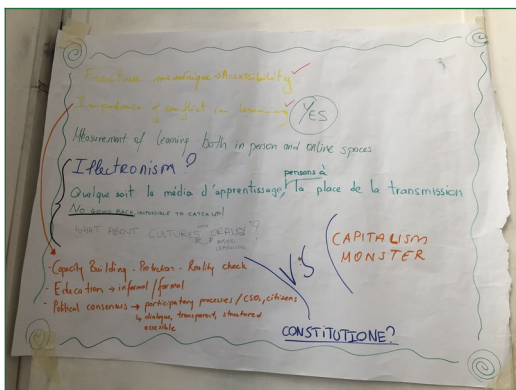 Fracture numérique → Accessibility
Importance of conflict in learning
YES
Measurement of learning both in person and online spaces
persons à
Quelque soit la média d'apprentissage, la place de la transmission
NO GOING BACK, IMPOSSIBLE TO CATCH UP!
WHAT ABOUT CULTURES ORALS?
CAPITALISM
MONSTER
VS
- Capacity Building - Protection - Reality check
- Education → informal/formal
- Political consensus → participatory processes / CSOs, citizens
↳ dialogue, transparent, structured
accesible
CONSTITUTIONE?